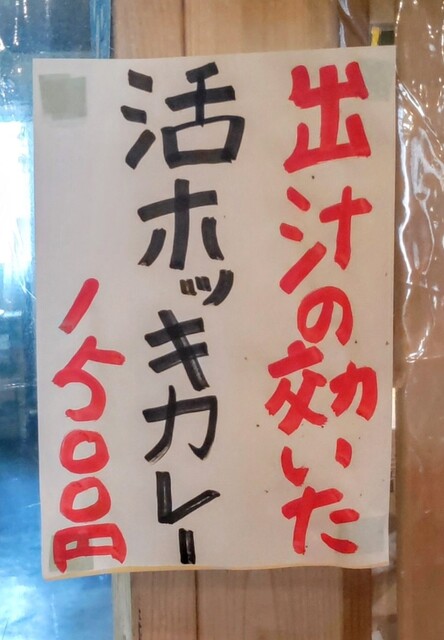 出汁の効いた
活ホッキカレー
1500円